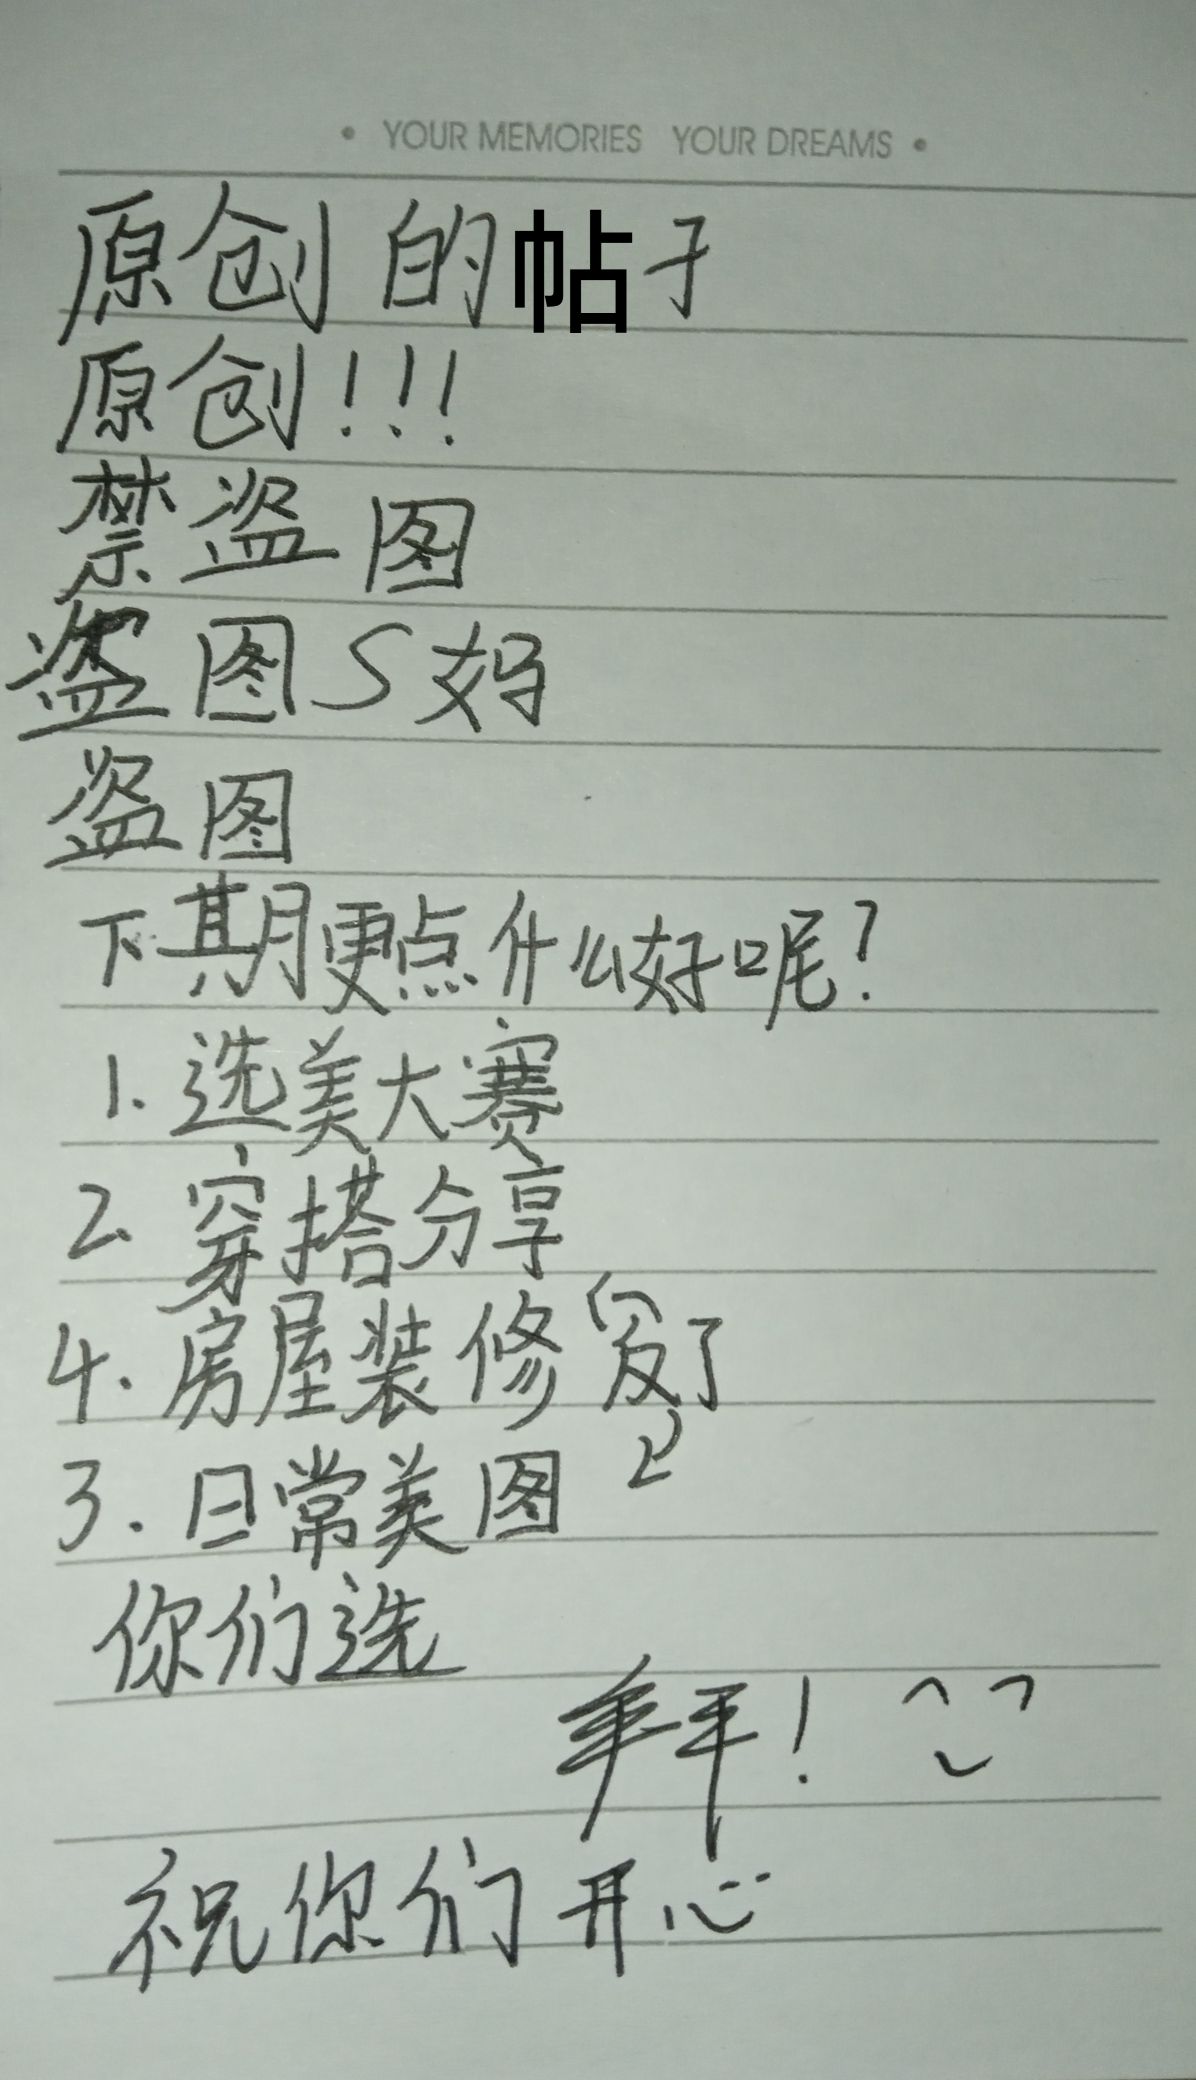 • YOUR MEMORIES YOUR DREAMS •
原创的帖子
原创!!!
禁盗图
盗图S妈
盗图
下期更点什么好呢?
1. 选美大赛
2. 穿搭分享
4. 房屋装修
3. 日常美图
你们选
祝你们开心